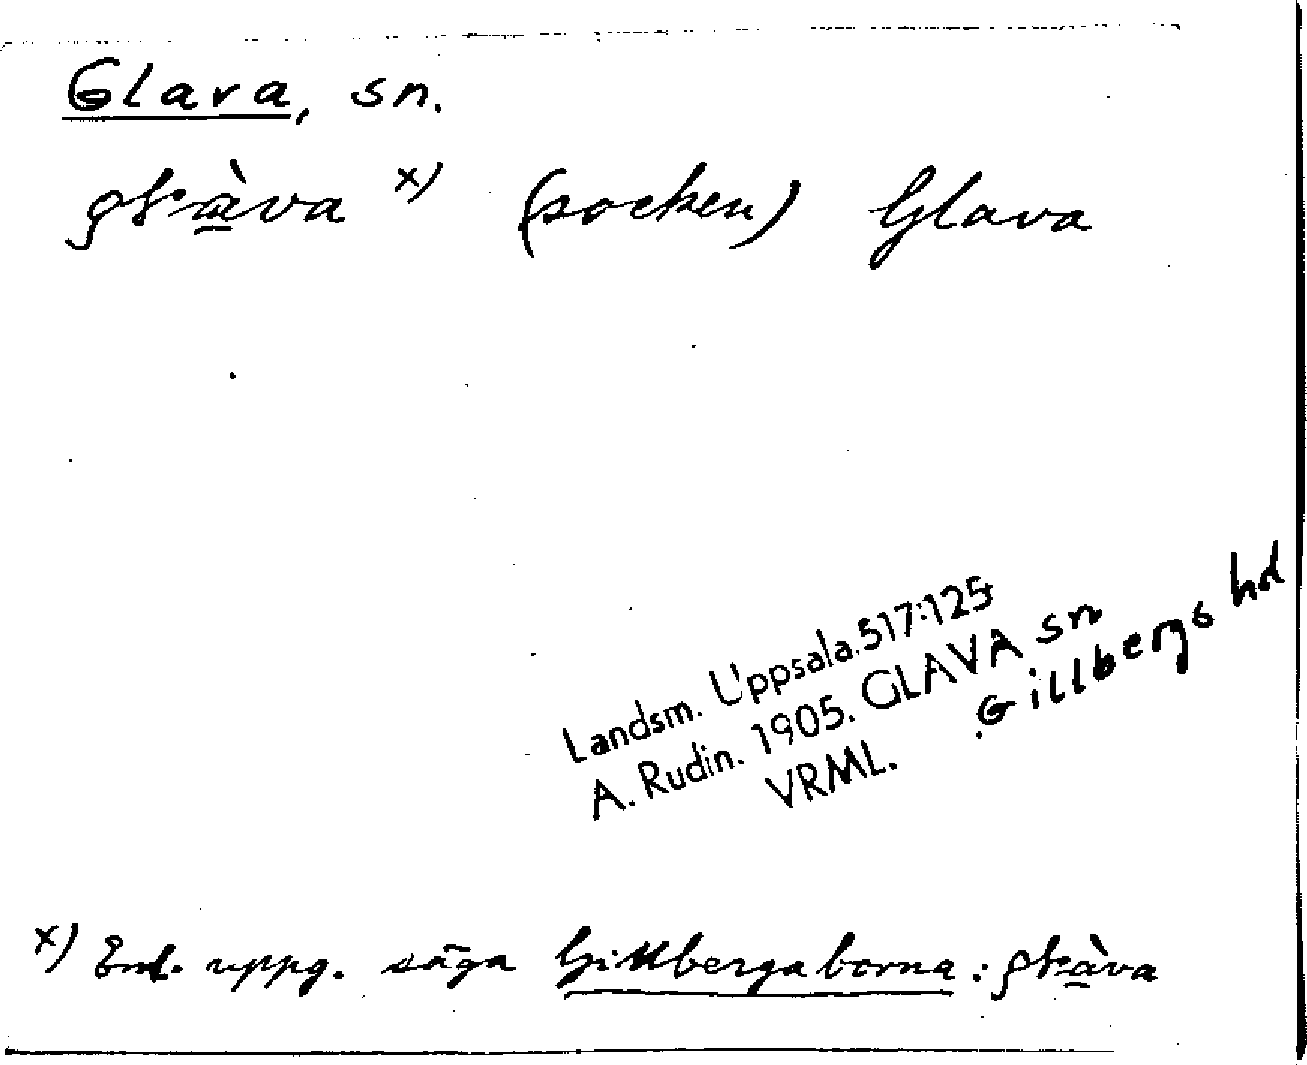 Glava, sn.
gɫàva x) (socken) Glava
Landsm. Uppsala. 517:125
A. Rudin. 1905. GLAVA sn
VRML. Gillbergs hd
x) Enl. uppg. säga Gillbergaborna: gɫàva